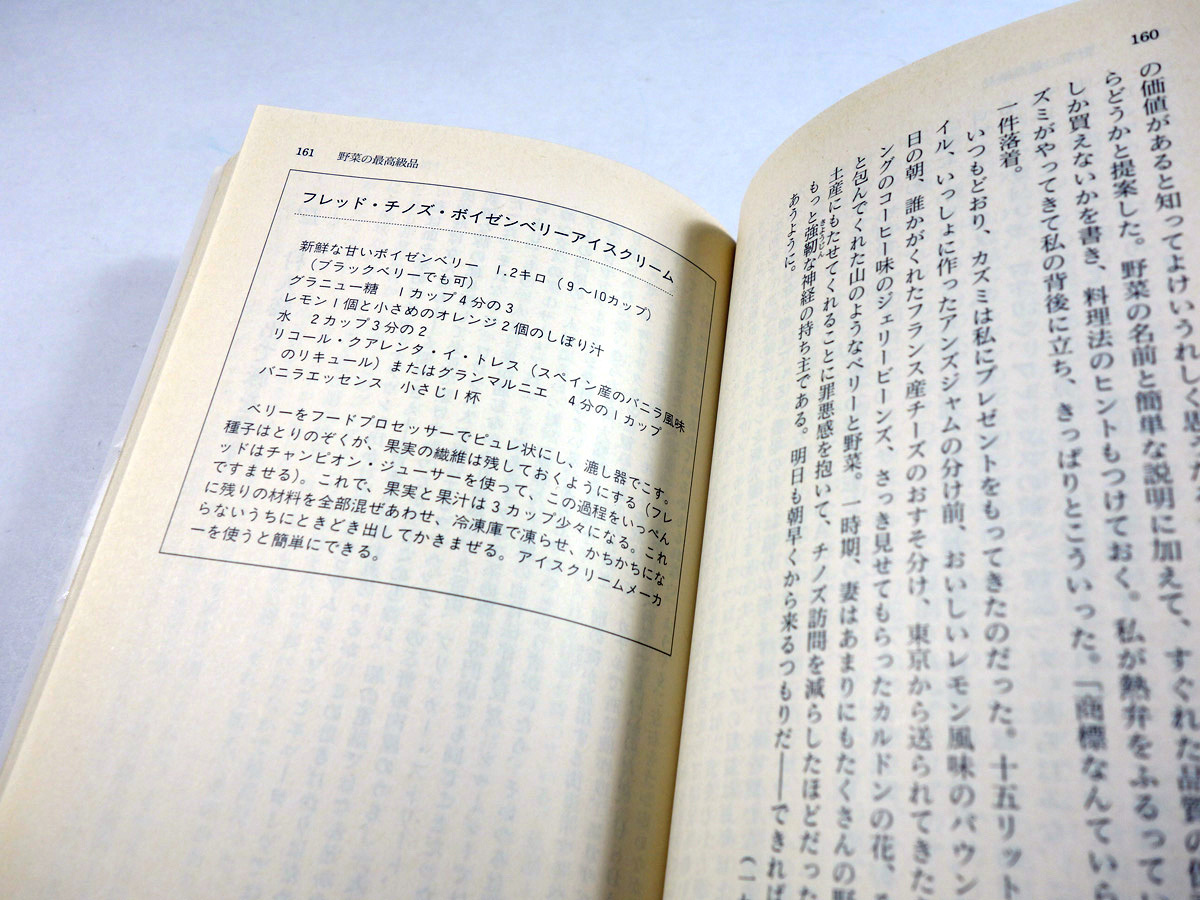 160
の価値があると知ってよけいうれしく思
らどうかと提案した。野菜の名前と簡単な説明に加えて、すぐれた品質の
しか買えないかを書き、料理法のヒントもつけておく。私が熱弁をふるってい
ズミがやってきて私の背後に立ち、きっぱりとこういった。「商標なんていら
一件落着。
いつもどおり、カズミは私にプレゼントをもってきたのだった。十五リット
イル、いっしょに作ったアンズジャムの分け前、おいしいレモン風味のパウン
日の朝、誰かがくれたフランス産チーズのおすそ分け、東京から送られてきた
ングのコーヒー味のジェリービーンズ、さっき見せてもらったカルドンの花、
と包んでくれた山のようなベリーと野菜。一時期、妻はあまりにもたくさんの野
土産にもたせてくれることに罪悪感を抱いて、チノズ訪問を減らしたほどだった
もっと強靭な神経の持ち主である。明日も朝早くから来るつもりだ――できれば
きょうじん
あうように。
161 野菜の最高級品
フレッド・チノズ・ボイゼンベリーアイスクリーム
新鮮な甘いボイゼンベリー 1.2キロ(9〜10カップ)
(ブラックベリーでも可)
グラニュー糖 1カップ4分の3
レモン1個と小さめのオレンジ2個のしぼり汁
水 2カップ3分の2
リコール・クアレンタ・イ・トレス(スペイン産のバニラ風味
のリキュール)またはグランマルニエ 4分の1カップ
バニラエッセンス 小さじ1杯
ベリーをフードプロセッサーでピュレ状にし、漉し器でこす。
種子はとりのぞくが、果実の繊維は残しておくようにする(フレ
ッドはチャンピオン・ジューサーを使って、この過程をいっぺん
ですませる)。これで、果実と果汁は3カップ少々になる。これ
に残りの材料を全部混ぜあわせ、冷凍庫で凍らせ、かちかちにな
らないうちにときどき出してかきまぜる。アイスクリームメーカ
ーを使うと簡単にできる。